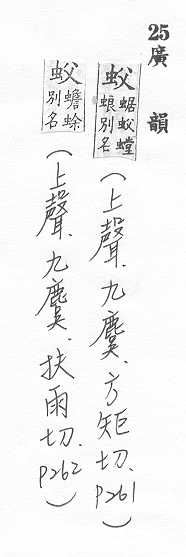 25廣韻
蚥 蜛蚥螳蜋別名 (上聲.九麌.方矩切.p261)
蚥 蟾蜍別名 (上聲.九麌.扶雨切.p262)